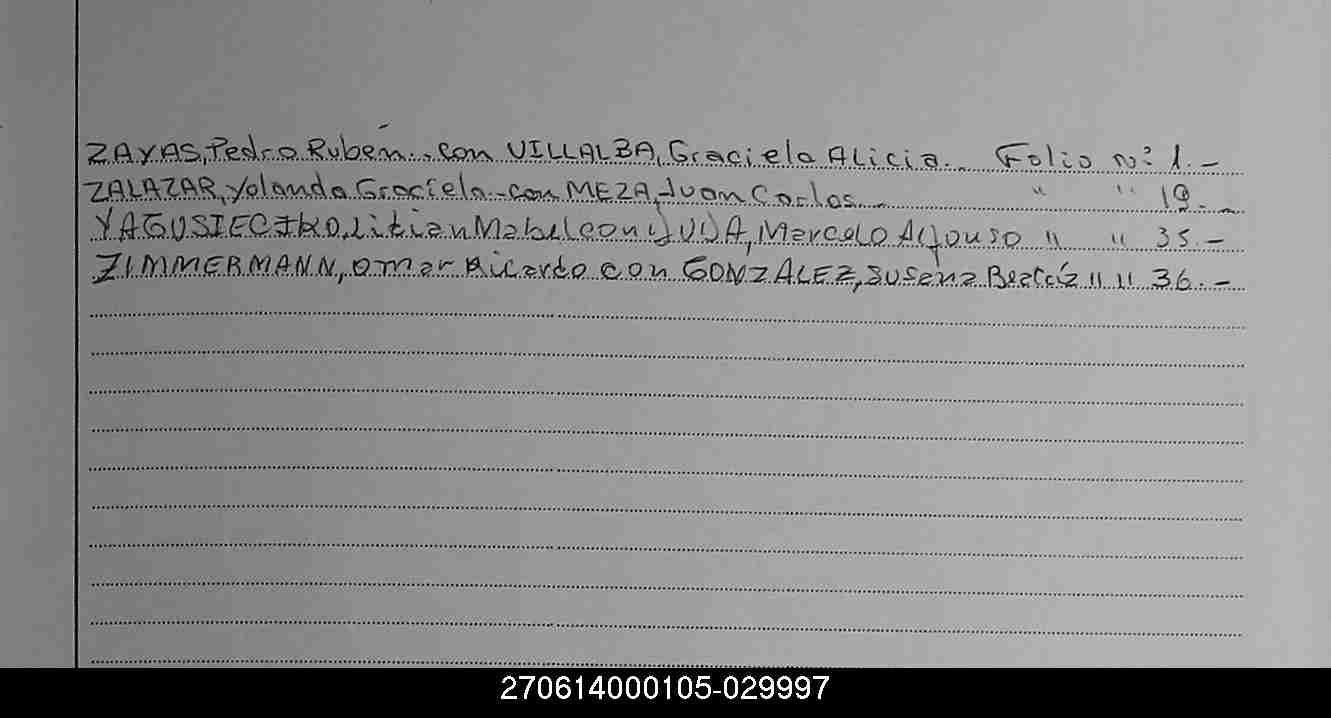 ZAYAS, Pedro Rubén.. con VILLALBA, Graciela Alicia.. Folio nº 1.-
ZALAZAR, Yolanda Graciela.- con MEZA, Juan Carlos.. " " 19.-
Mabel con Marcelo " " 35.-
ZIMMERMANN, Omar Ricardo con GONZALEZ, Susana Beatríz " " 36.-
270614000105-029997